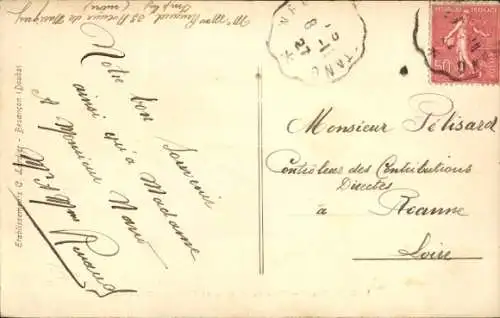 Mr Mme Renaud 33 Avenue de
Imphy (
Notre bon Souvenir
ainsi qu'à Madame
et Monsieur
Mr & Mme Renaud
Etablissements C. Besançon (Doubs)
TANC
8
27
50
Monsieur Pélisard
Contrôleur des Contributions
Directes
à Roanne
Loire